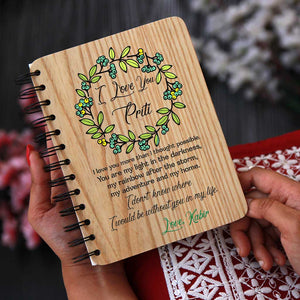 I Love You
Priti
I love you more than I thought possible.
You are my light in the darkness,
my rainbow after the storm,
my adventure and my home.
I don't know where
I would be without you in my life.
Love, Kabir